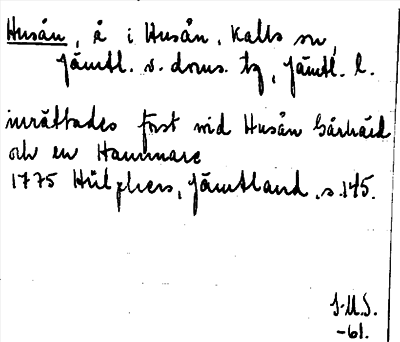 Husån, å i Husån, Kalls sn,
Jämtl. v. doms. tg, Jämtl. l.
inrättades först vid Husån
och en Hammare
1775 Hülphers, Jämtland, s. 145.
J.M.S.
-61.